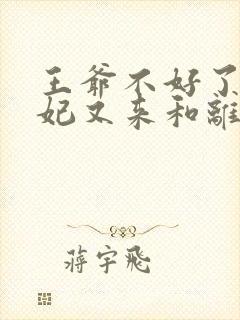 王爺不好了
妃又来和離
蔣宇飛